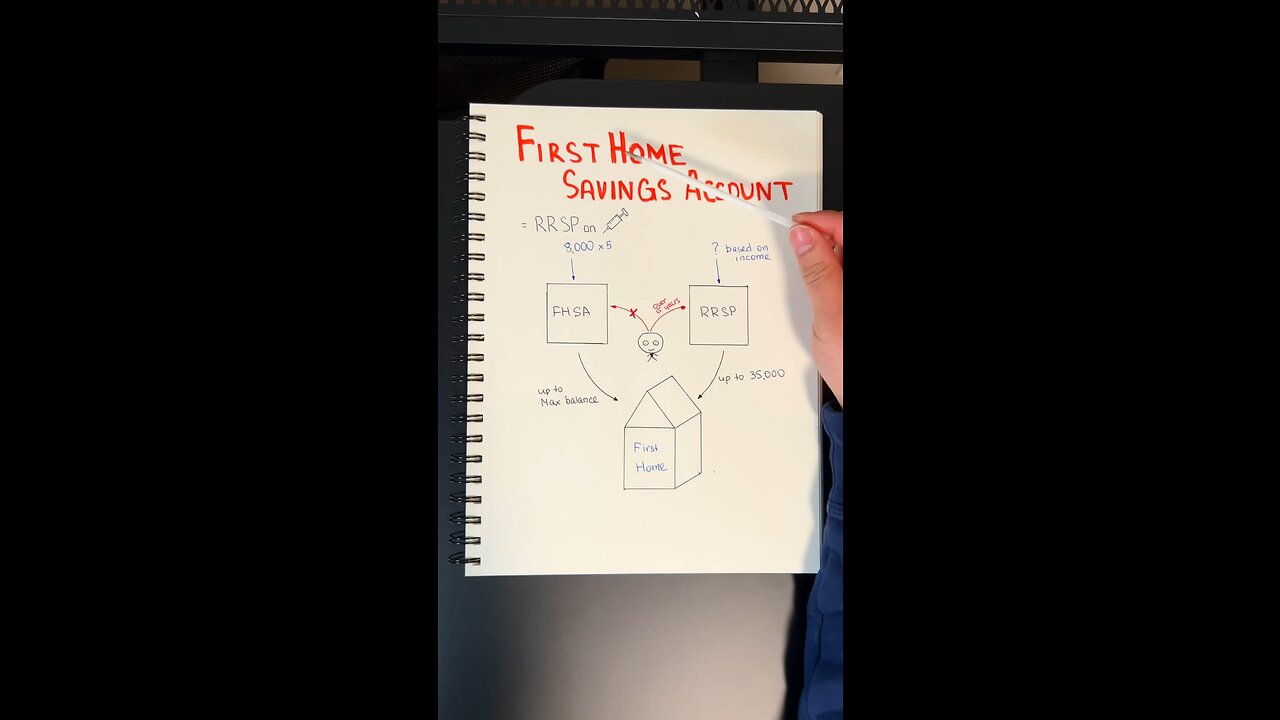 FIRST HOME
SAVINGS ACCOUNT
= RRSP on
8,000 x 5
? based on
income
FHSA
over
years
RRSP
up to
Max balance
up to 35,000
First
Home